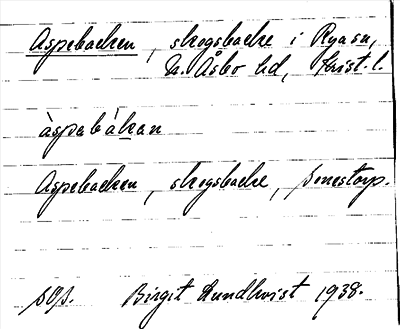 Aspebacken, skogsbacke i Ryasn,
N. Åsbo hd, Krist. l.
àspebákan
Aspebacken, skogsbacke,
Birgit Lundkvist 1938.